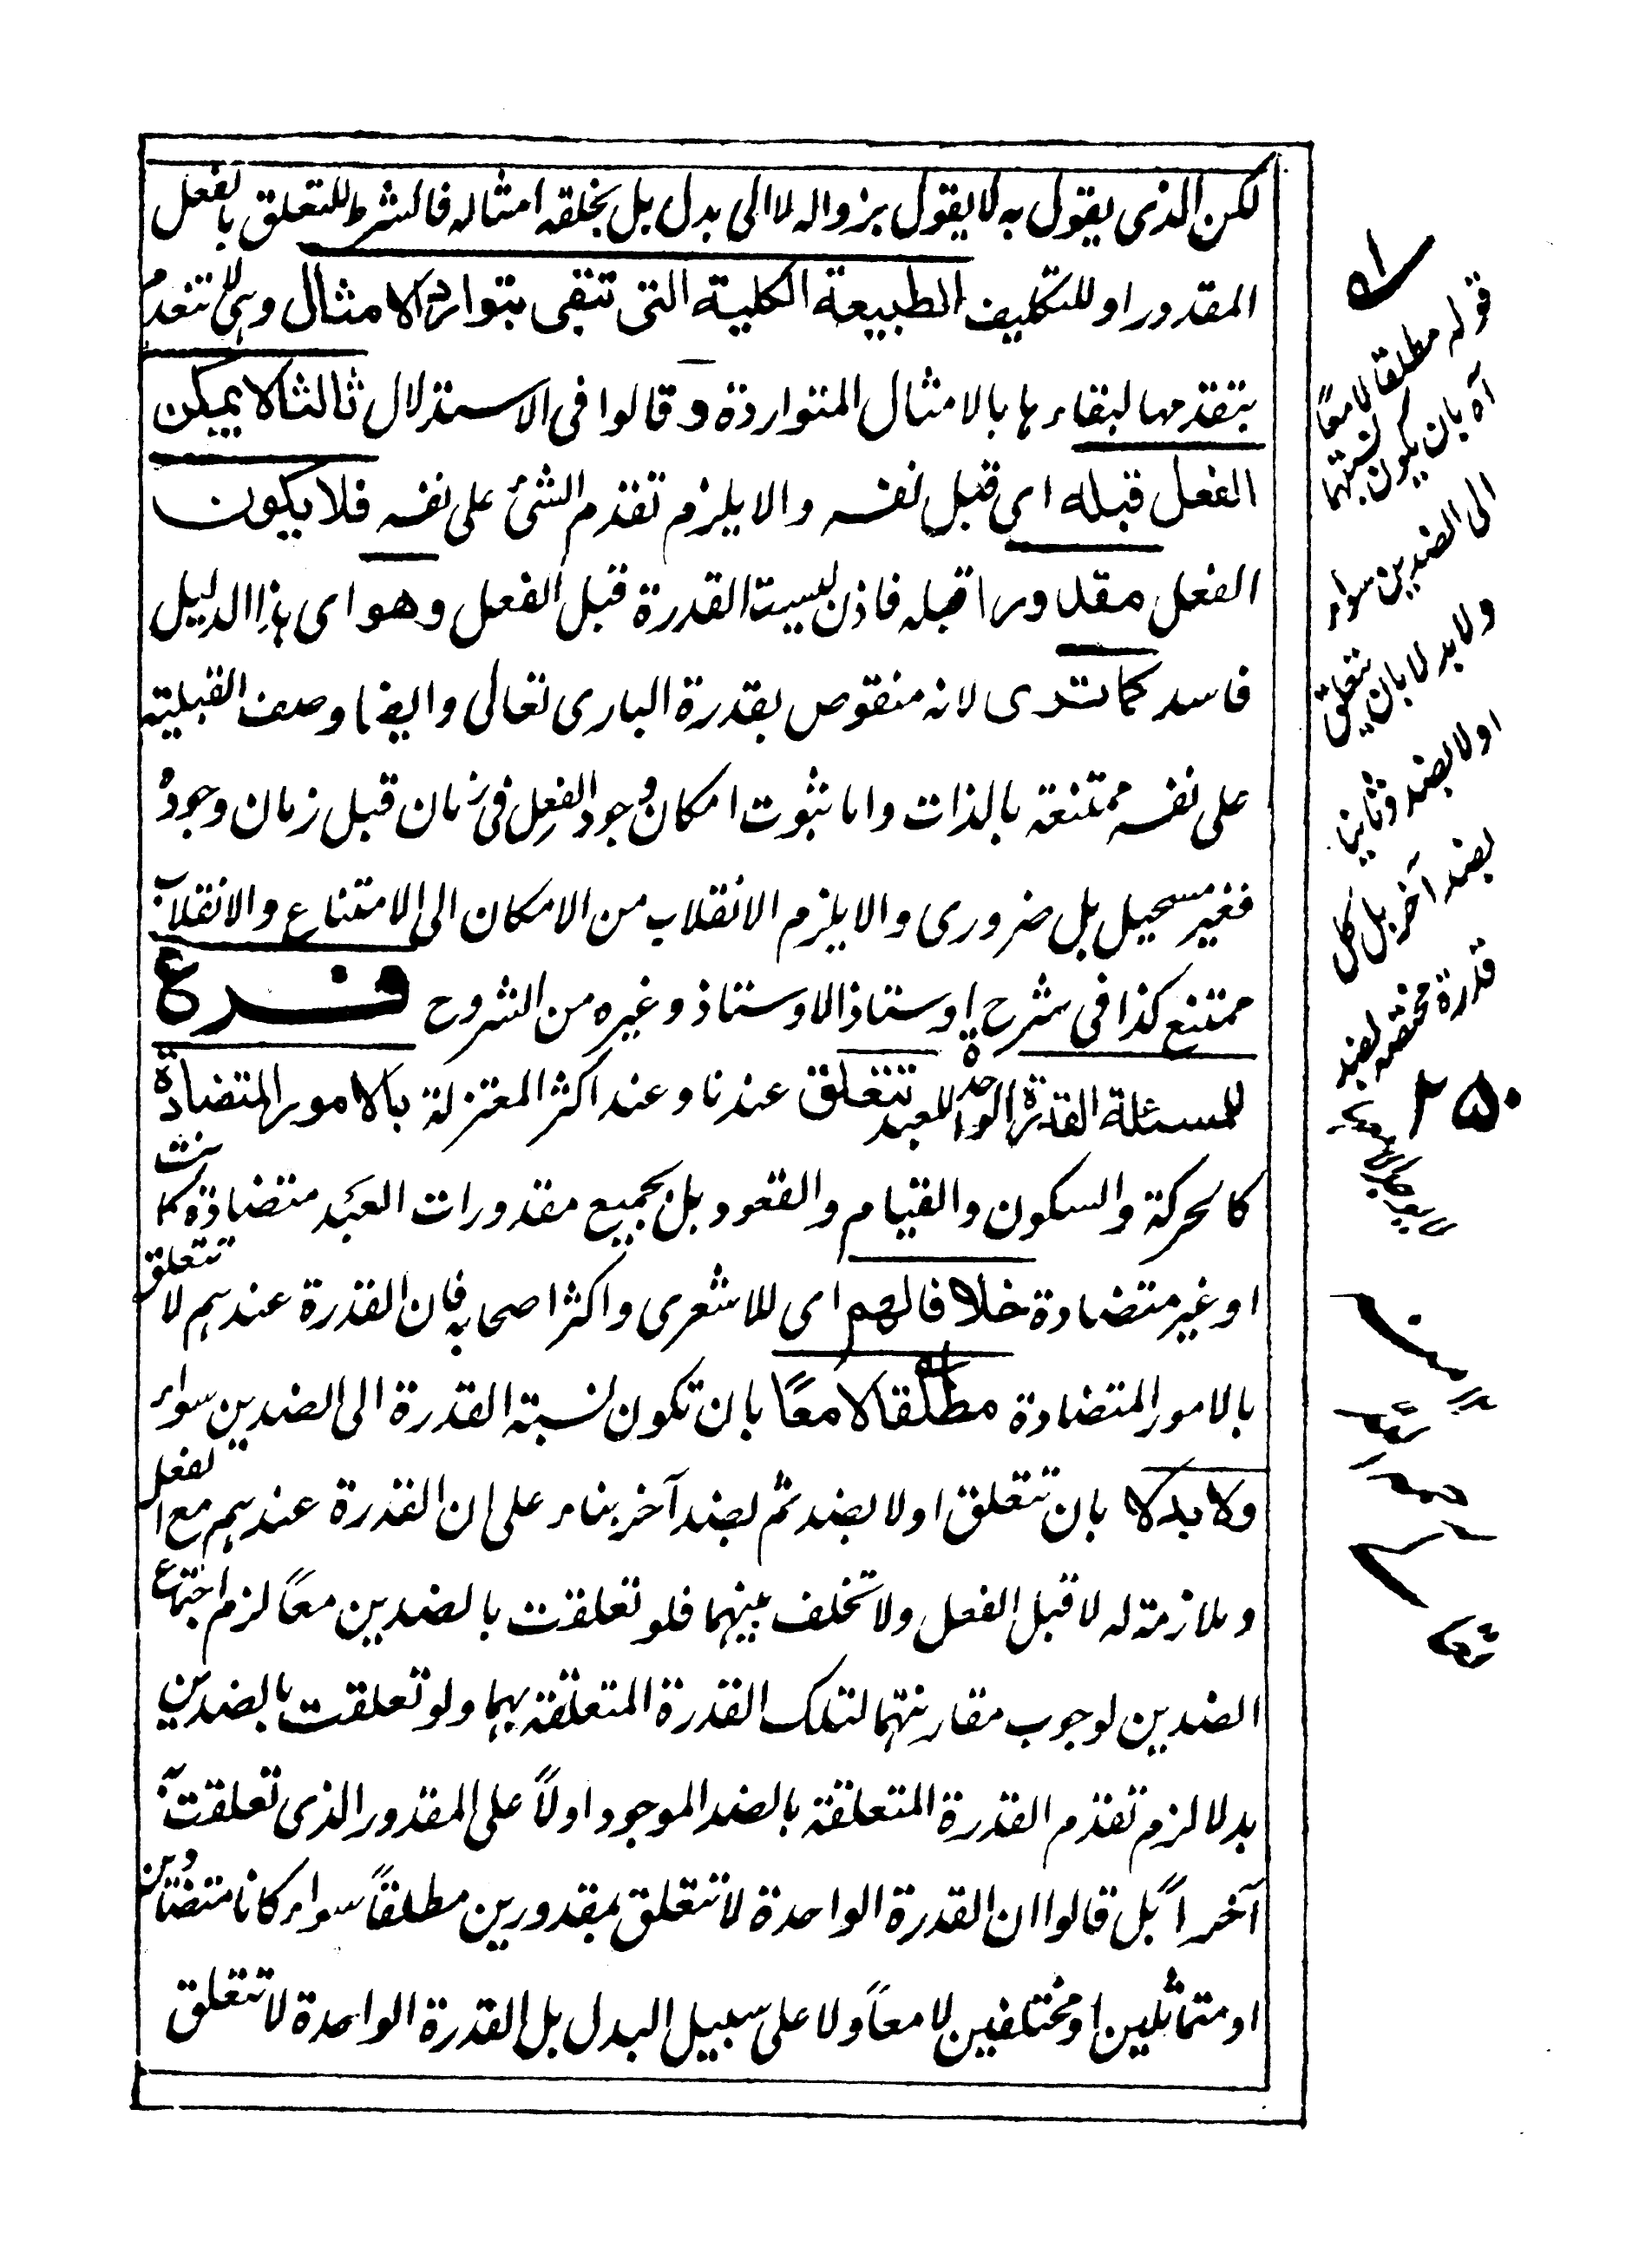 لكن الذى يقول به لا يقول بزواله لا الى بدل بل بخلقه امثاله فالشرط للتعلق بالفعل
المقدور او للتكليف الطبيعة الكلية التى تبقى بتوارد الامثال وهى لا تنعدم
بتقدمها لبقاءها بالامثال المتواردة وقالوا فى الاستدلال ثالثا لا يمكن
الفعل قبله اى قبل نفسه والا يلزم تقدم الشئ على نفسه فلا يكون
الفعل مقدورا قبله فاذن ليست القدرة قبل الفعل وهو اى هذا الدليل
فاسد كما ترى لانه منقوض بقدرة البارى تعالى وايضا وصف القبلية
على نفسه ممتنعة بالذات واما ثبوت امكان وجود الفعل فى زمان قبل زمان وجوده
فغير مستحيل بل ضرورى والا يلزم الانقلاب من الامكان الى الامتناع والانقلاب
ممتنع كذا فى شرح اوستاذ الاوستاذ وغيره من الشروح فرع
للمسئلة القدرة الواحدة للعبد تتعلق عندنا وعند اكثر المعتزلة بالامور المتضادة
كالحركة والسكون والقيام والقعود بل بجميع مقدورات العبد متضادة كانت
او غير متضادة خلافا لهم اى للاشعرى واكثر اصحابه فان القدرة عندهم لا تتعلق
بالامور المتضادة مطلقا لا معًا بان تكون نسبة القدرة الى الضدين سواء
ولا بدلا بان تتعلق اولا بضد ثم بضد آخر بناء على ان القدرة عندهم مع الفعل
وملازمة له لا قبل الفعل ولا تخلف بينهما فلو تعلقت بالضدين معًا لزم اجتماع
الضدين لوجوب مقارنتهما لتلك القدرة المتعلقة بهما ولو تعلقت بالضدين
بدلا لزم تقدم القدرة المتعلقة بالضد الموجود اولاً على المقدور الذى تعلقت به
آخراً بل قالوا ان القدرة الواحدة لا تتعلق بمقدورين مطلقاً سواء كانا متضادين
او متماثلين او مختلفين لا معاً ولا على سبيل البدل بل القدرة الواحدة لا تتعلق
قوله مطلقا لا معًا
آه بان يكون نسبتها
الى الضدين سواء
ولا بدلا بان يتعلق
اولا بضد وثانيا
بضد آخر بل كل
قدرة مختصة بضد
٢٥٠